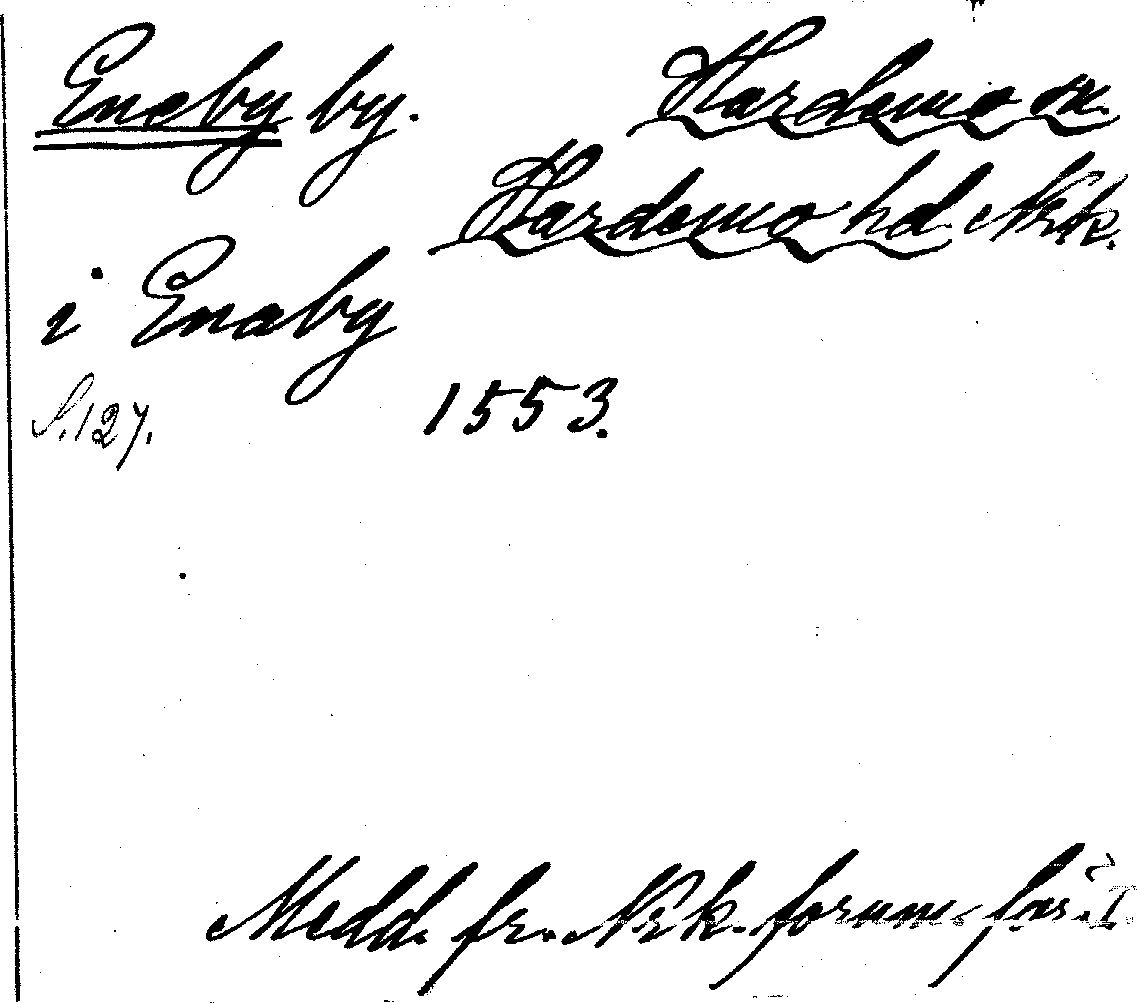 Enaby by. Hardemo sn.
Hardemo hd Nrk.
i Enaby
S. 127. 1553.
Medd. fr. Nrk. fornm. för. I